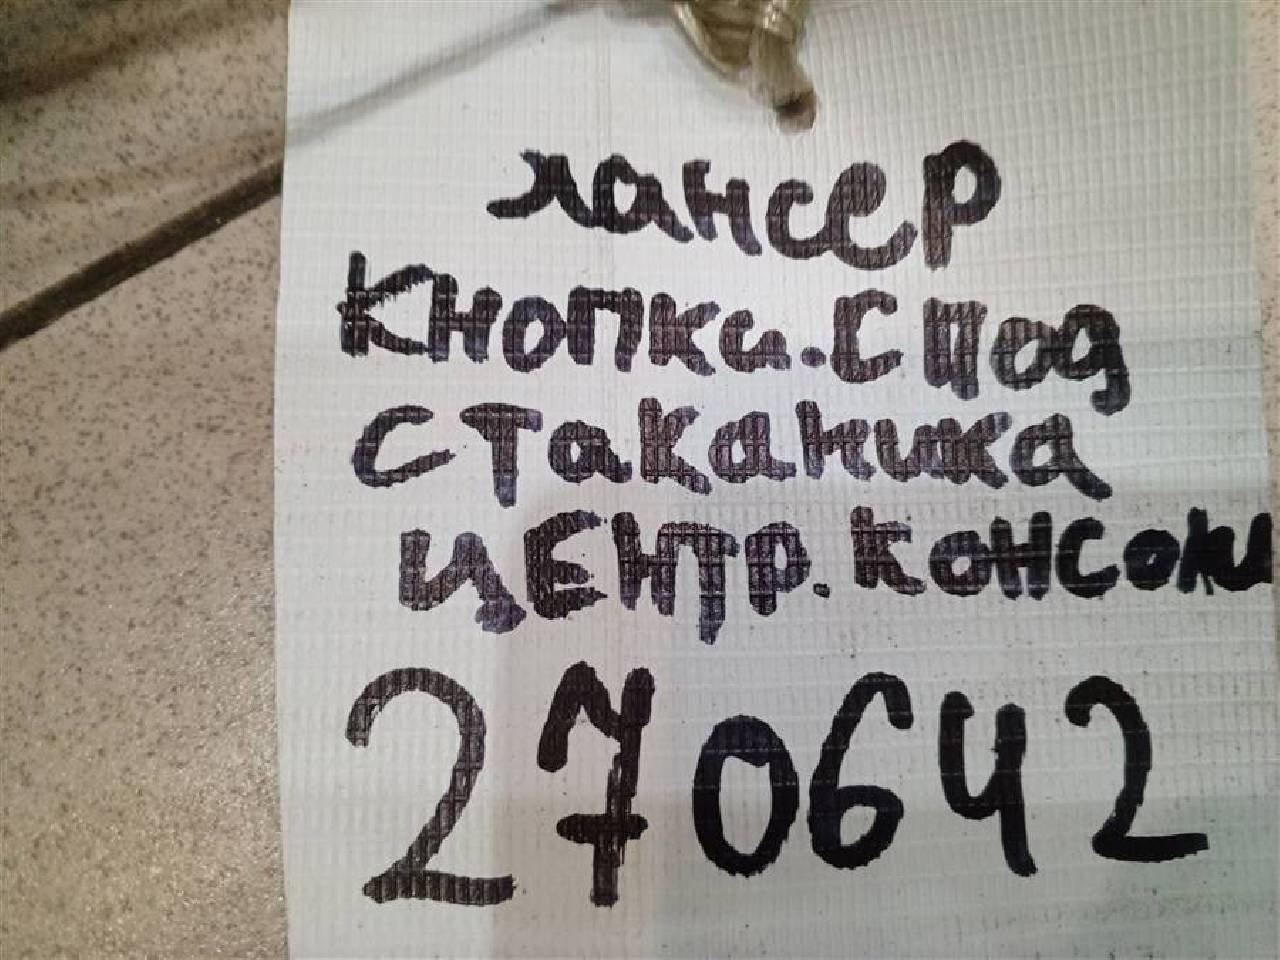 лансер
Кнопка.С под
стаканика
центр.консоли
270642